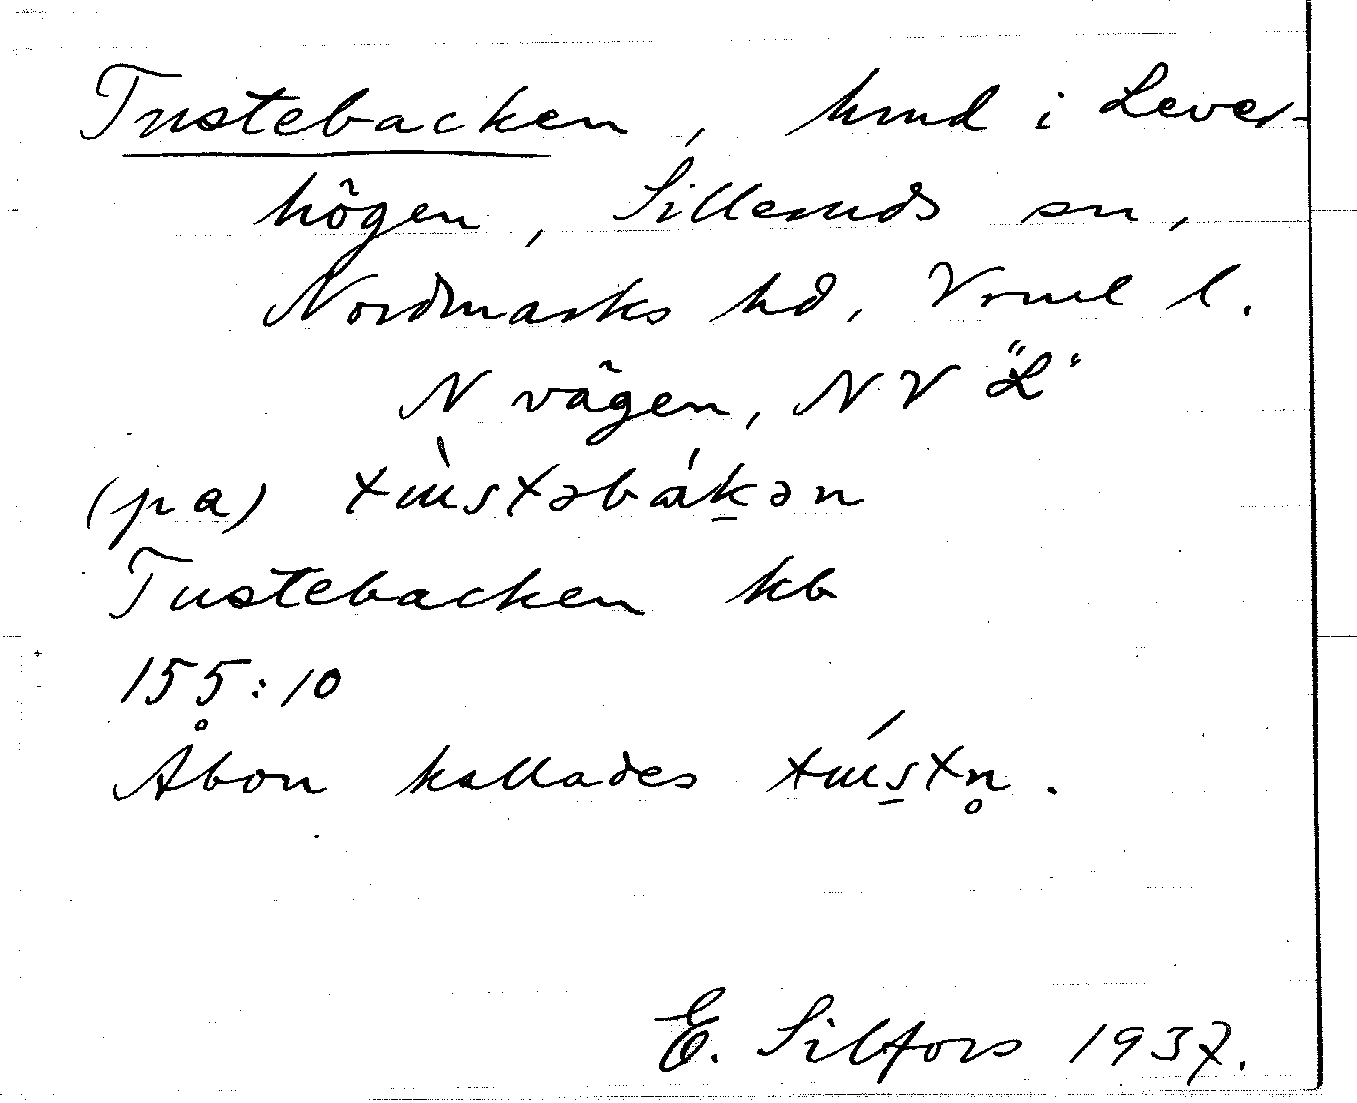 Tustebacken, hmd i Lever-
högen, Silleruds sn,
Nordmarks hd, Vrml l.
N vägen, NV "L"
(pa) tɯ̀stəbák̠ən
Tustebacken kb
155:10
Åbon kallades tɯ́s̠tn̥.
E. Silfors 1937.